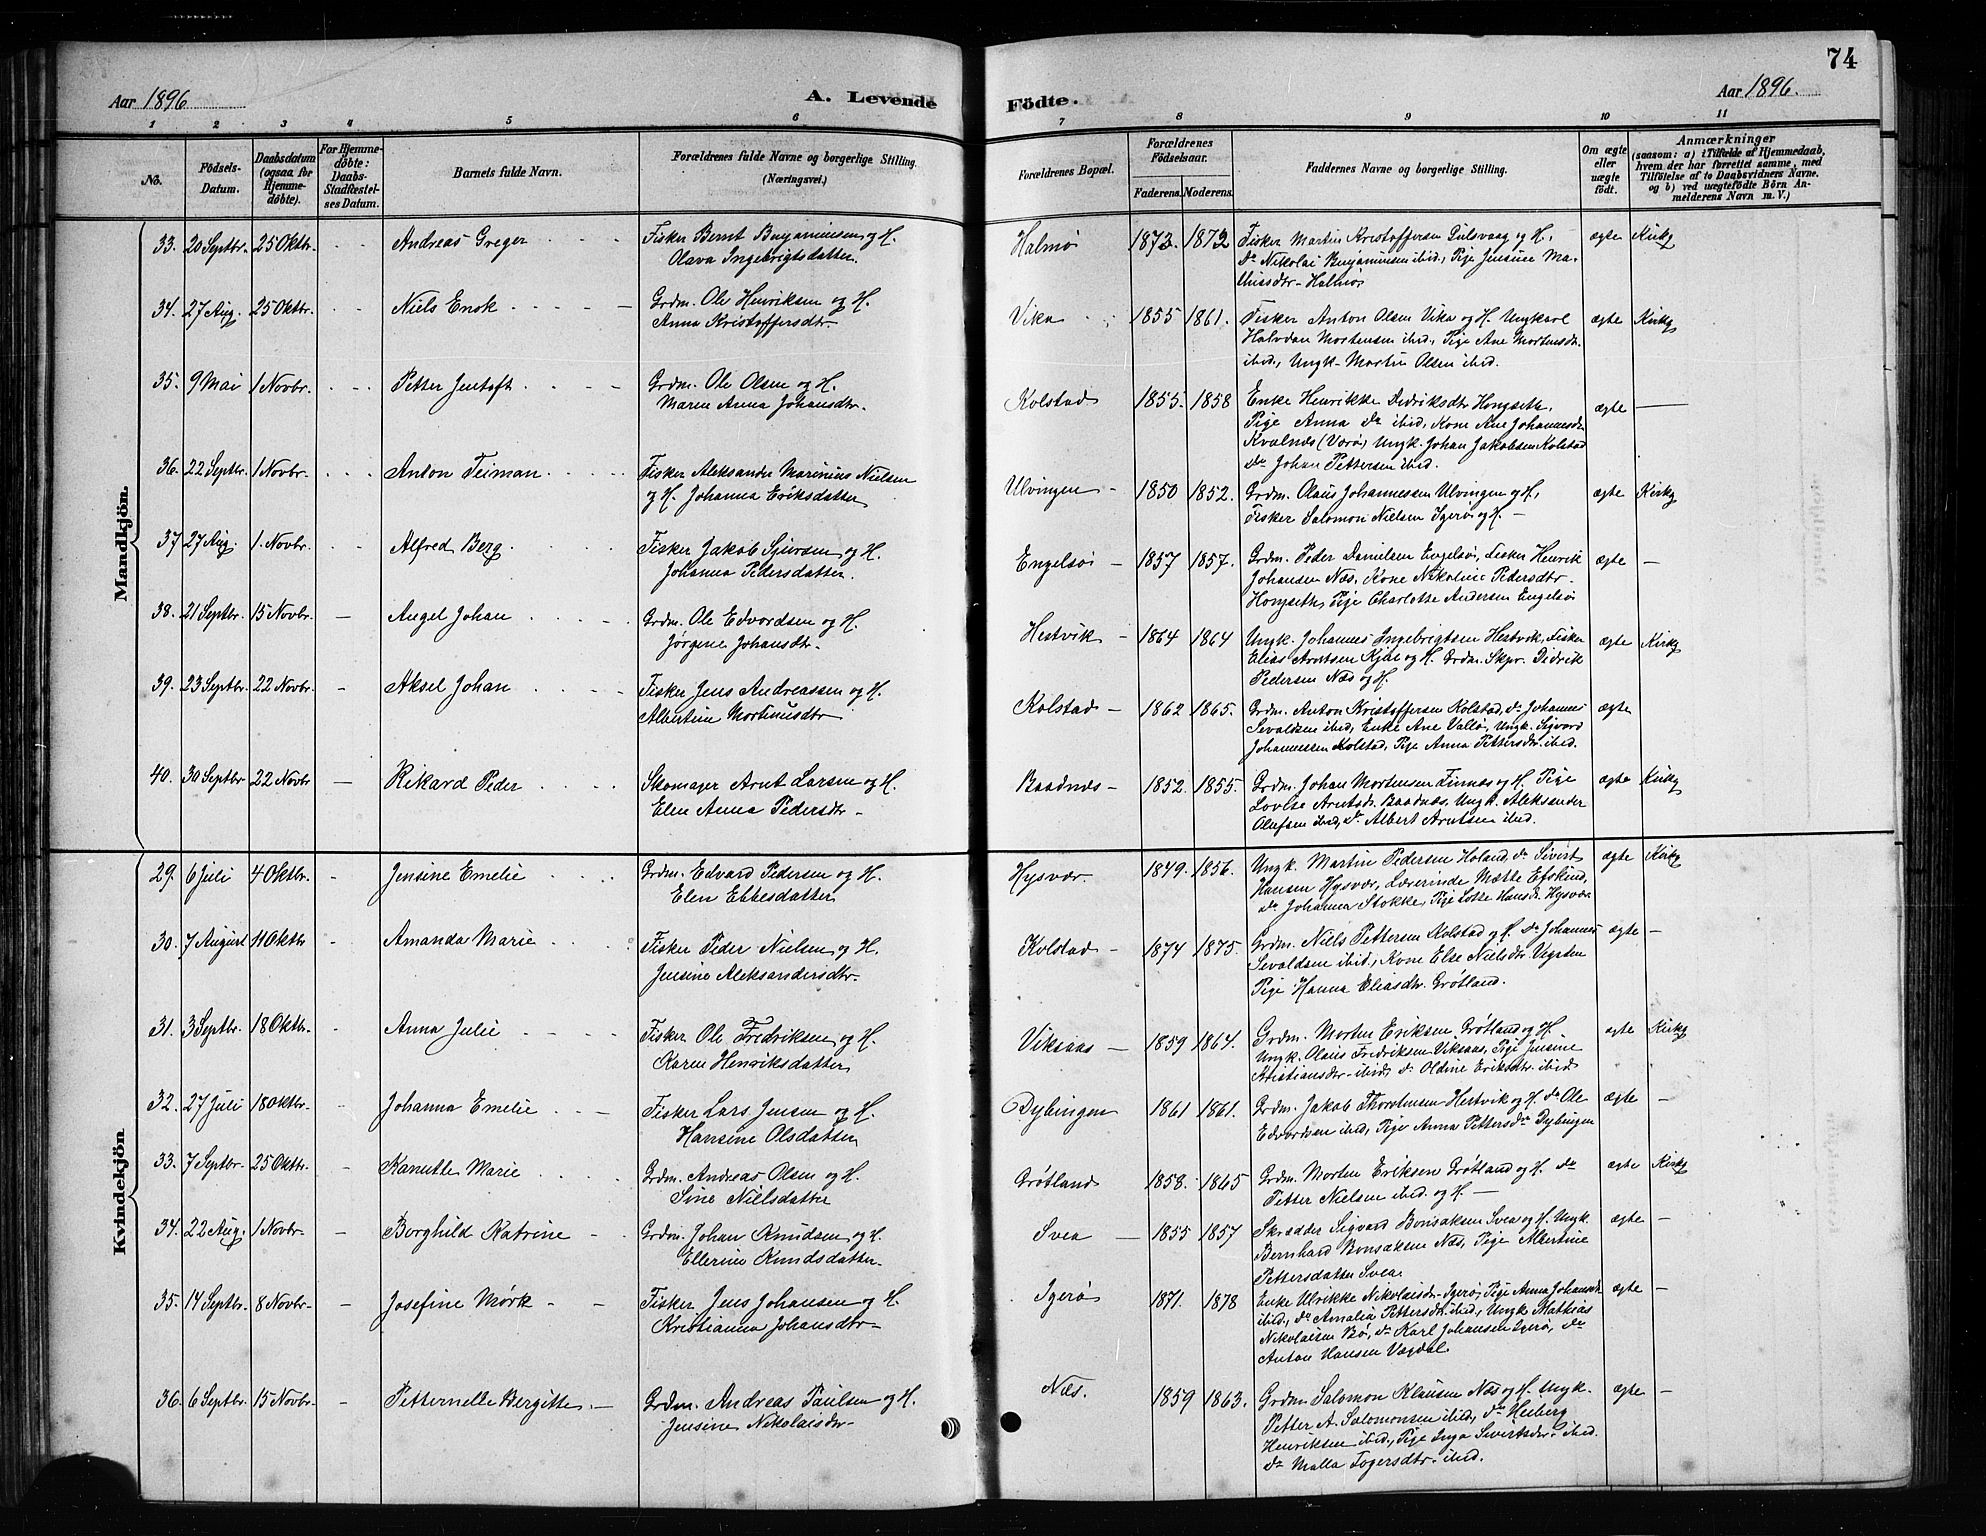 74
Aar 1896
A. Levende
Födte.
Aar 1896.
1 2 3 4 5 6 7 8 9 10 11
No.
Födsels-Datum.
Daabsdatum (ogsaa for Hjemme-döbte).
For Hjemme-döbte: Daabs-Stadfæstel-ses Datum.
Barnets fulde Navn.
Forældrenes fulde Navne og borgerlige Stilling.
(Næringsvei.)
Forældrenes Bopæl.
Forældrenes Födselsaar.
Faderens. Moderens.
Faddernes Navne og borgerlige Stilling.
Om ægte eller uægte födt.
Anmærkninger
(saasom: a) i Tilfælde af Hjemmedaab, hvem der har forrettet samme, med Tilföielse af to Daabsvidners Navne. og b) ved uægtefödte Börn An-melderens Navn m. V.)
Mandkjön.
33. 20 Septbr. 25 Oktbr. Andreas Greger Fisker Bernt Benjaminsen og H.
Olava Ingebrigtsdatter.
Halmø 1873. 1872 Fisker Martin Kristoffersen og H.
Dº Nikolai Benjaminsen ibid., Pige Jensine Ma-
thiasdtr. Halmø
ægte Kirkg
34. 27 Aug. 25 Oktbr. Niels Enok Grdm. Ole Henriksen og H.
Anna Kristoffersdtr
Vika 1855 1861. Fisker Anton Olsen Vika og H. Ungkarl
Halvdan Mortensen ibid., Pige Ane Mortensdr.
ibid., Ungk. Martin Olsen ibid.
ægte Kirkg
35. 9 Mai 1 Novbr. Petter Jentoft Grdm. Ole Olsen og H.
Maren Anna Johansdtr.
Kolstad 1855. 1858 Enke Henrikke Didriksdtr Hongseth,
Pige Anna dº ibid, Kone Ane Johannesdr
Kvalnæs (Værø), Ungk. Johan Jakobsen Kolstad
dº Johan Pettersen ibid.
ægte —
36. 22 Septbr. 1 Novbr. Anton Teiman Fisker Aleksander Marinius Nielsen
og H. Johanna Eriksdatter
Ulvingen 1850 1852. Grdm. Olaus Johannessen Ulvingen og H.
Fisker Salomon Nielsen Igerø og H. —
ægte Kirkg
37 27 Aug. 1. Novbr. Alfred Berg. Fisker Jakob Sjursen og H.
Johanna Pedersdatter.
Engelsøi 1857 1857. Grdm. Peder Danielsen Engelsøi, Fisker Henrik
Johansen Næs, Kone Nikoline Pedersdtr.
Hongseth, Pige Charlotte Andersen Engelsø
ægte —
38. 21 Septbr. 15 Novbr. — Angel Johan Grdm. Ole Edvardsen og H.
Jørgine Johansdtr.
Hestvik 1864 1864 Ungk. Johannes Ingebrigtsen Hestvik, Fisker
Elias Arntsen og H. Grdm. Skpr. Didrik
Pedersen Næs og H.
ægte Kirkg
39. 23 Septbr. 22 Novbr. - Aksel Johan Fisker Jens Andreassen og H.
Albertine Mortinusdtr
Kolstad 1862 1865. Grdm. Anton Kristoffersen Kolstad, dº Johannes
Sevaldsen ibid, Enke Ane Vallø, Ungk. Sigvard
Johannessen Kolstad, Pige Anna Pettersdtr. ibid.
ægte
40. 30 Septbr 22 Novbr — Rikard Peder Skomager Arnt Larsen og H.
Elen Anna Pedersdtr —
Baadnæs 1852. 1855. Grdm. Johan Mortensen Finnæs og H. Pige
Lovise Arntsdr. Baadnæs, Ungk. Aleksander
Olufsen ibid, dº Albert Arntsen ibid.
ægte Kirkg
Kvindekjön
29. 6 Juli 4 Oktbr. - Jensine Emelie Grdm. Edvard Pedersen og H.
Elen Ebbesdatter
Hysvær. 1849. 1856. Ungk. Martin Pedersen Holand, dº Sivert
Hansen Hysvær, Lærerinde Mette Efskind,
dº Johanna Stokke, Pige Lotte Hansdr. Hysvær
ægte Kirkg
30. 7 August 11 Oktbr - Amanda Marie Fisker Peder Nielsen og H.
Jensine Aleksandersdtr.
Kolstad 1874 1875. Grdm. Niels Pettersen Kolstad og H. dº Johannes
Sevaldsen ibid., Kone Else Nielsdtr. Vegsten
Pige Hanna Eliasdtr. Grøtland.
ægte —
31. 3 Septbr. 18 Oktbr. - Anna Julie Fisker Ole Fredriksen og H.
Karen Henriksdatter
Viksaas 1859 1864. Grdm. Morten Eriksen Grøtland og H.
Ungk. Olaus Fredriksen Viksaas, Pige Jensine
Kristiansdtr. ibid, d. Oldine Eriksdtr. ibid
ægte Kirkg
32. 27 Juli 18 Oktbr. - Johanna Emelie Fisker Lars Jensen og H.
Hansine Olsdatter
Dybingen 1861 1861. Grdm. Jakob Thorstensen Hestvik og H. dº Ole
Edvardsen ibid., Pige Anna Petters dº Dybingen
ægte —
33. 7 Septbr. 25 Oktbr. - Kanutte Marie Grdm. Andreas Olsen og H.
Sine Nielsdatter
Grøtland 1858. 1865 Grdm. Morten Eriksen Grøtland og H. dº
Petter Nielsen ibid. og H. —
ægte Kirkg
34. 22 Aug. 1 Novbr. - Borghild Katrine Grdm. Johan Knudsen og H.
Ellerine Knudsdatter.
Svea 1855 1857 Skrædder Sigvard Bonsaksen Svea og H. Ungk.
Bernhard Bonsaksen Næs, Pige Albertine
Pettersdatter Svea.
ægte —
35. 14 Septbr. 8 Novbr. - Josefine Mørk Fisker Jens Johansen og H.
Kristianna Johansdtr
Igerø 1871. 1878 Enke Ulrikke Nikolaisdr. Igerø, Pige Anna Johansdr
ibid., dº Amalia Pettersdtr. ibid., Ungk Mathias
Nikolaisen Bø, dº Karl Johansen Igerø, dº
Anton Hansen Vægdal.
ægte —
36. 6 Septbr. 15 Novbr. - Petternelle Bergitte. Grdm. Andreas Paulsen og H.
Jensine Nikolaisdr.
Næs. 1859 1863. Grdm. Salomon Klausen Næs og H. Ungk.
Petter A. Salomonsen ibid., dº Heiberg
Henriksen ibid., Pige Inga Sivertsdr. ibid.
dº Malla Togersdtr. ibid.
ægte —